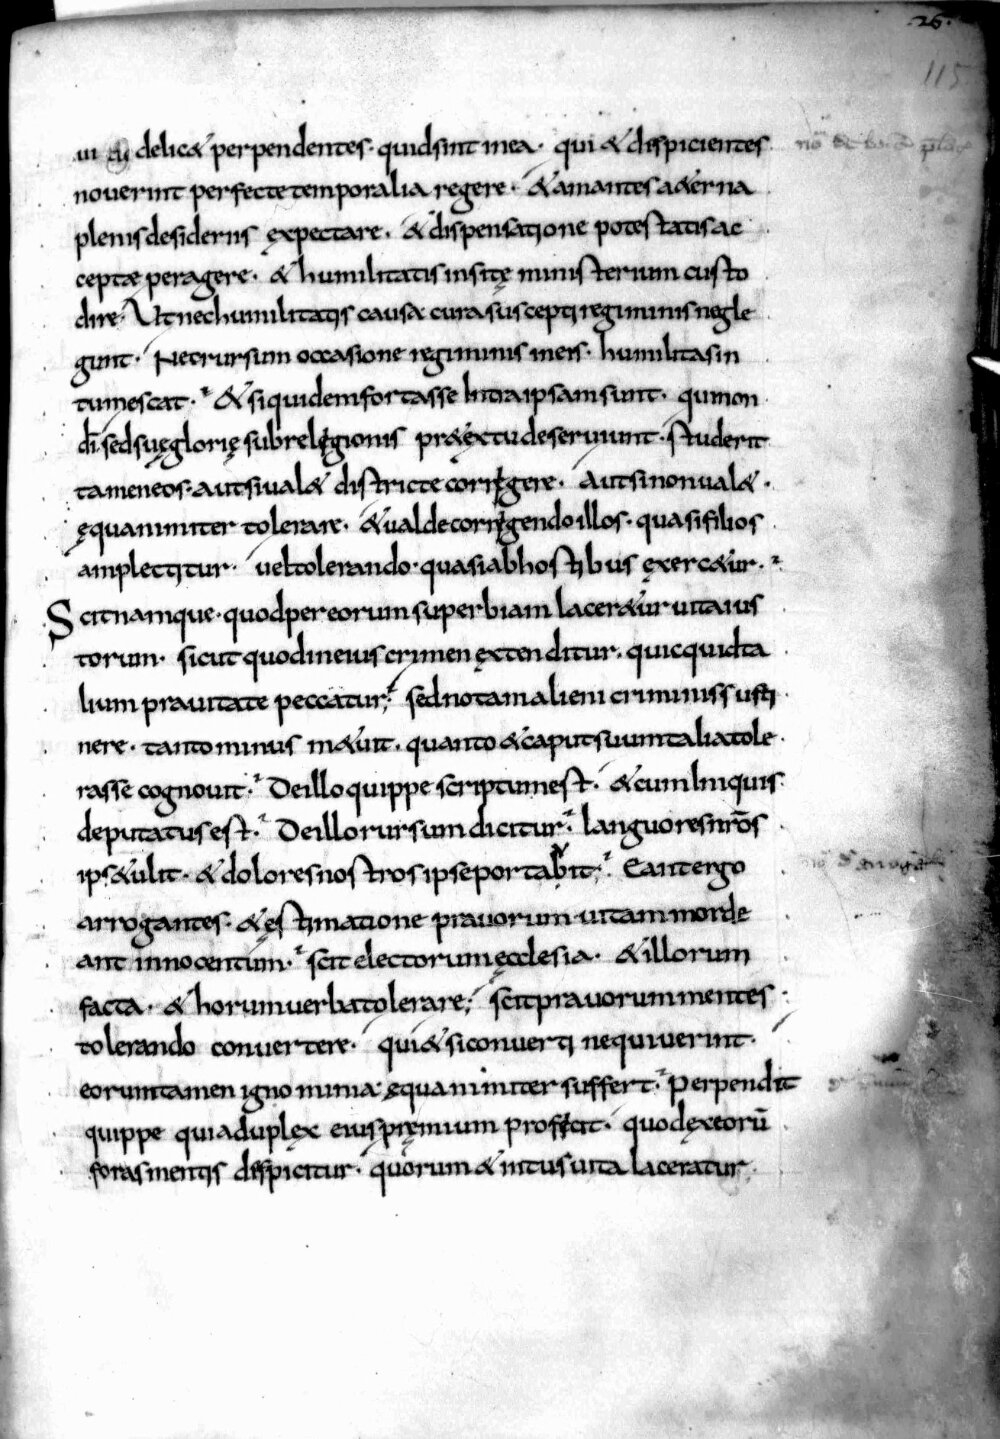 .26.
115
ui di delic& perpendentes· quid sint in ea· qui & dispicientes
noverint perfecte temporalia regere· & amantes a&erna
plenis desideriis ęxpectare· & dispensatione potestatis ac
ceptæ peragere· & humilitatis insitę ministerium custo
dire· Ut nec humilitatis causa cura suscepti regiminis negle
gunt· Nec rursum occasione regiminis in eis· humilitas in
tumescat· & si quidem fortasse Intra ipsam sunt· qui non
dī· sed suę glorię sub relegionis pr&ęxtu deseruiunt· studerit
tamen eos· aut si ual& districte corrigere· Aut si non ual&·
ęquanimiter tolerare· & ualde corrigendo illos· quasi filios
amplectitur· uel tolerando· quasi ab hostibus ęxerc&ur·
Scit namque· quod per eorum superbiam lacer&ur uita ius
torum· sicut quod in eius crimen ęxtenditur· quicquid ta
lium prauitate peccatur; sed notam alieni criminis susti
nere· tanto minus m&uit· quanto & caput suum talia tole
rasse cognouit· De illo quippe scriptum est· & cum Iniquis
deputatus est· De illo rursum dicitur· languores nr̄os
ipse tulit· & dolores nostros ipse portabit· Eant ergo
arrogantes· & ęstimatione prauorum uitam morde
ant innocentium· scit electorum ęcclesia· & illorum
facta· & horum uerba tolerare; scit prauorum mentes
tolerando convertere· qui & si converti nequiverint·
eorum tamen ignominia ęquanimiter suffert· Perpendit
quippe quia duplęx eius pręmium proficit· quod ęx eorū
foras mentis dispicitur· quorum & intus uita laceratur·